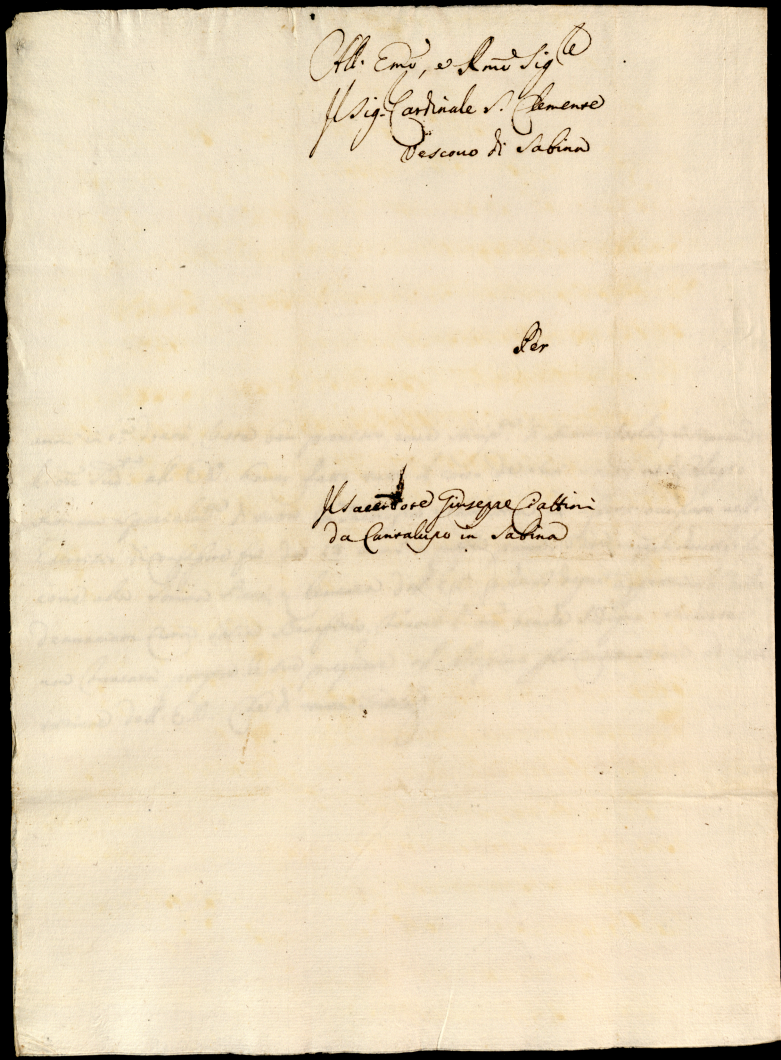 All' Emo, e Rmo Sig.re
Il Sig. Cardinale S. Clemente
Vescovo di Sabina
Per
Il Sacerdote Giuseppe Ciattini
da Cantalupo in Sabina